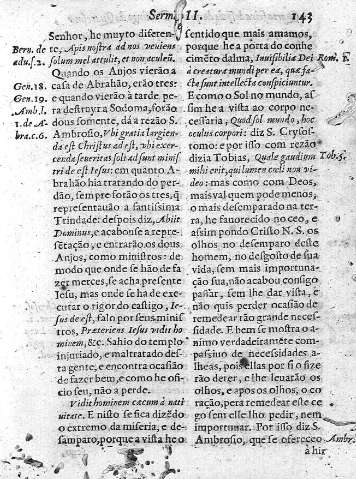 Serm. II. 143
Senhor, he muyto diferen-
te, Apis nostra ad nos veniens
solum mel attulit, et non aculeũ.
Quando os Anjos vierão a
casa de Abrahão, erão tres:
e quando vierão à tarde pe-
ra destroyr a Sodoma, forão
dous somente, dá a rezão S.
Ambrosio, Vbi gratia largien-
da est Christus adest, vbi exer-
cenda seueritas soli adsunt mini-
stri de est Iesus: em quanto A-
brahão hia tratando do per-
dão, sempre forão os tres, q̃
representauão a santissima
Trindade: despois diz, Abijt
Dominus, e acabouse a repre-
sẽtação, e entrarão os dous
Anjos, como ministros: de
modo que onde se hão de fa
zer merces, se acha presente
Iesu, mas onde se ha de exe-
cutar o rigor do castigo, Ie-
sus de est, falo por seus minis
tros, Præteriens Iesus vidit ho
minem, &c. Sahio do templo
injuriado, e maltratado des-
ta gente, e encontra ocasião
de fazer bem, e como he ofi-
cio seu, não a perde.
Vidit hominem cæcum à nati
uitate. E nisto se fica dizẽdo
o extremo da miseria, e de-
samparo, porque a vista he o
Bern. de
adu. s. 2.
Gen. 18.
Gen. 19.
Amb. l.
1. de A-
bra. c. 6.
sentido que mais amamos,
porque he a porta do conhe
cimẽto dalma, Inuisibilia Dei
à creatura mundi per ea, quæ fa-
cta sunt intellecta conspiciuntur.
E como o Sol no mundo, as
sim he a vista ao corpo ne-
cessaria, Quod sol mundo, hoc
oculus corpori: diz S. Crysos-
tomo: e por isso com rezão
dizia Tobias, Quale gaudium
mihi erit, qui lumen cæli non vi-
deo: mas como com Deos,
mais val quem pode menos,
o mais desemparado na ter-
ra, he fauorecido no ceo, e
assim pondo Christo N. S. os
olhos no desemparo deste
homem, no desgosto de sua
vida, sem mais importuna-
ção sua, não acabou consigo
passar, sem lhe dar vista, e
não quis perder ocasião de
remedear tão grande neces-
sidade. E bem se mostra o a-
nimo verdadeiramẽte com-
passiuo de necessidades a-
lheas, pois ellas por si o fize
rão deter, e lhe leuarão os
olhos, e apos os olhos, o co
ração, pera remedear este ce
go sem elle lho pedir, nem
importunar. Por isso diz S.
Ambrosio, que se offereceo
à hir
Rom. 1.
Tob. 5.
Ambr.